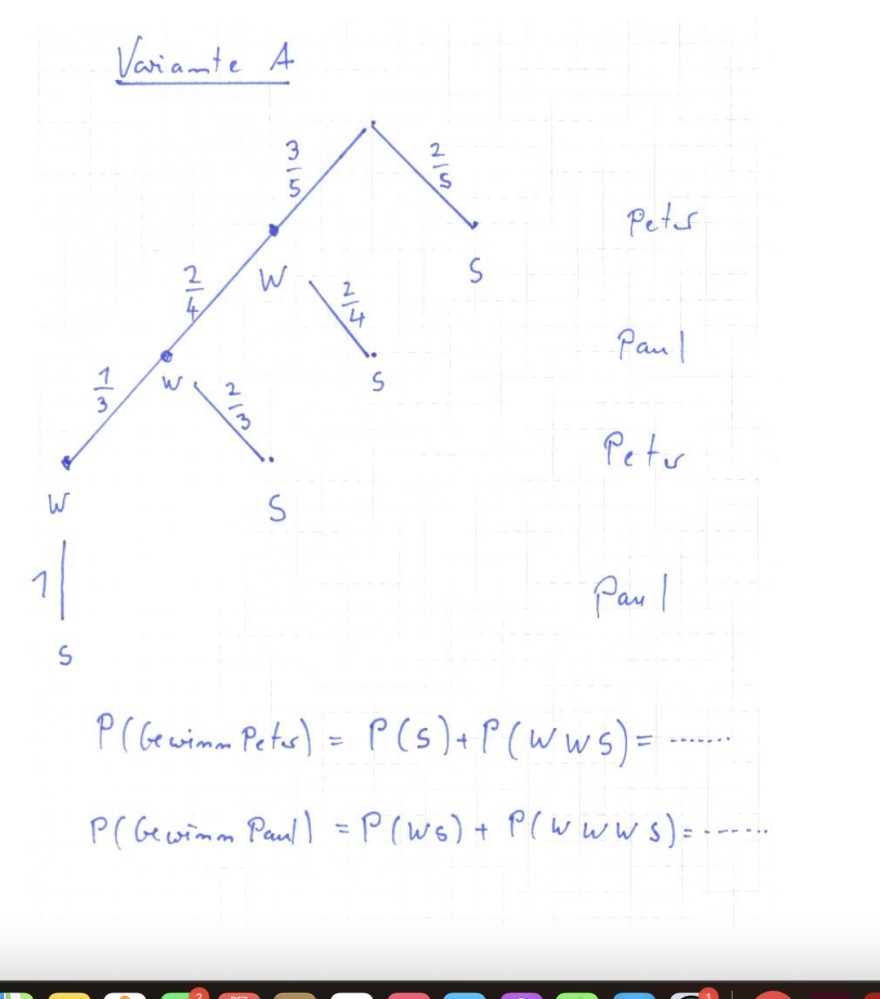 Variante A
3/5 2/5
Peter
W S
2/4 2/4
Paul
W S
1/3 2/3
Peter
W S
1
Paul
S
P(Gewinn Peter) = P(S) + P(WWS) = .......
P(Gewinn Paul) = P(WS) + P(WWWS) = .......